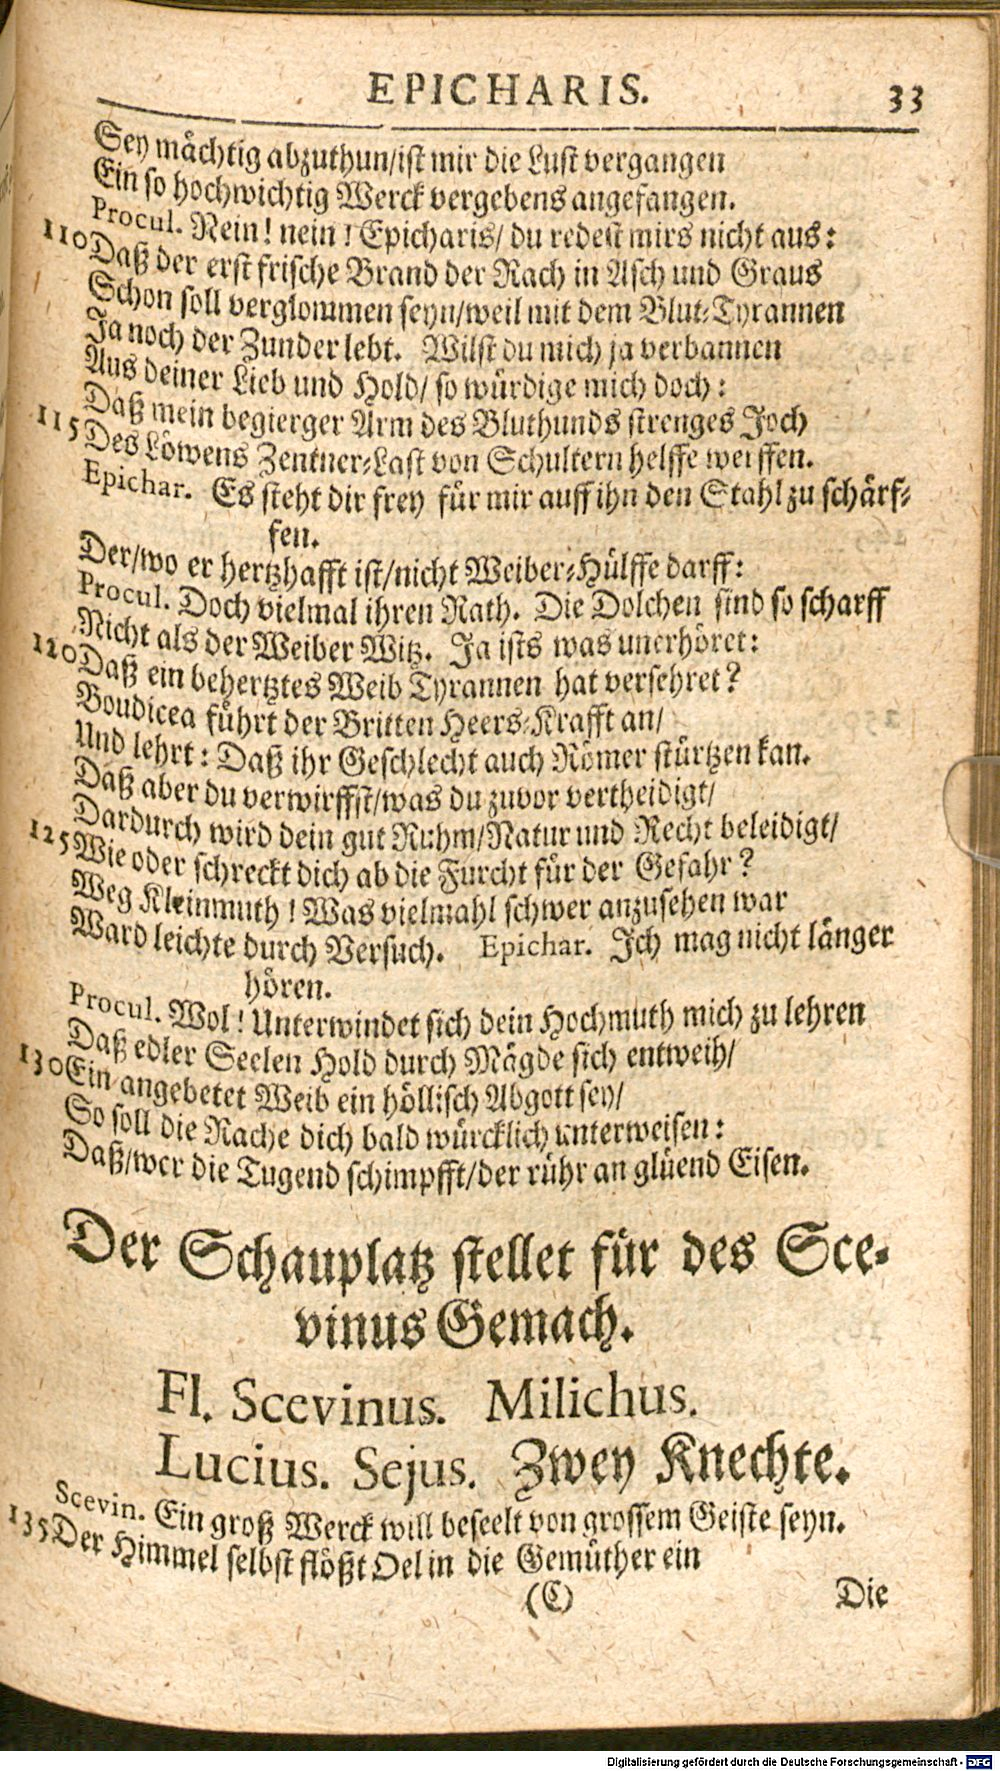 EPICHARIS. 33
Sey mächtig abzuthun/ist mir die Lust vergangen
Ein so hochwichtig Werck vergebens angefangen.
Procul. Nein! nein! Epicharis/ du redest mirs nicht aus:
110 Daß der erst frische Brand der Rach in Asch und Graus
Schon soll verglommen seyn/weil mit dem Blut-Tyrannen
Ja noch der Zunder lebt. Wilst du mich ja verbannen
Aus deiner Lieb und Hold/ so würdige mich doch:
Daß mein begierger Arm des Bluthunds strenges Joch
115 Des Löwens Zentner-Last von Schultern helffe weiffen.
Epichar. Es steht dir frey für mir auff ihn den Stahl zu schärf-
fen.
Der/wo er hertzhafft ist/nicht Weiber-Hülffe darff:
Procul. Doch vielmal ihren Rath. Die Dolchen sind so scharff
Nicht als der Weiber Witz. Ja ists was unerhöret:
120 Daß ein behertztes Weib Tyrannen hat versehret?
Boudicea führt der Britten Heers-Krafft an/
Und lehrt: Daß ihr Geschlecht auch Römer stürtzen kan.
Daß aber du verwirffst/was du zuvor vertheidigt/
Dardurch wird dein gut Ruhm/Natur und Recht beleidigt/
125 Wie oder schreckt dich ab die Furcht für der Gefahr?
Weg Kleinmuth! Was vielmahl schwer anzusehen war
Ward leichte durch Versuch. Epichar. Ich mag nicht länger
hören.
Procul. Wol! Unterwindet sich dein Hochmuth mich zu lehren
Daß edler Seelen Hold durch Mägde sich entweih/
130 Ein angebetet Weib ein höllisch Abgott sey/
So soll die Rache dich bald würcklich unterweisen:
Daß/wer die Tugend schimpfft/der rühr an glüend Eisen.
Der Schauplatz stellet für des Sce-
vinus Gemach.
Fl. Scevinus. Milichus.
Lucius. Sejus. Zwey Knechte.
Scevin. Ein groß Werck will beseelt von grossem Geiste seyn.
135 Der Himmel selbst flößt Oel in die Gemüther ein
(C) Die
Digitalisierung gefördert durch die Deutsche Forschungsgemeinschaft - DFG